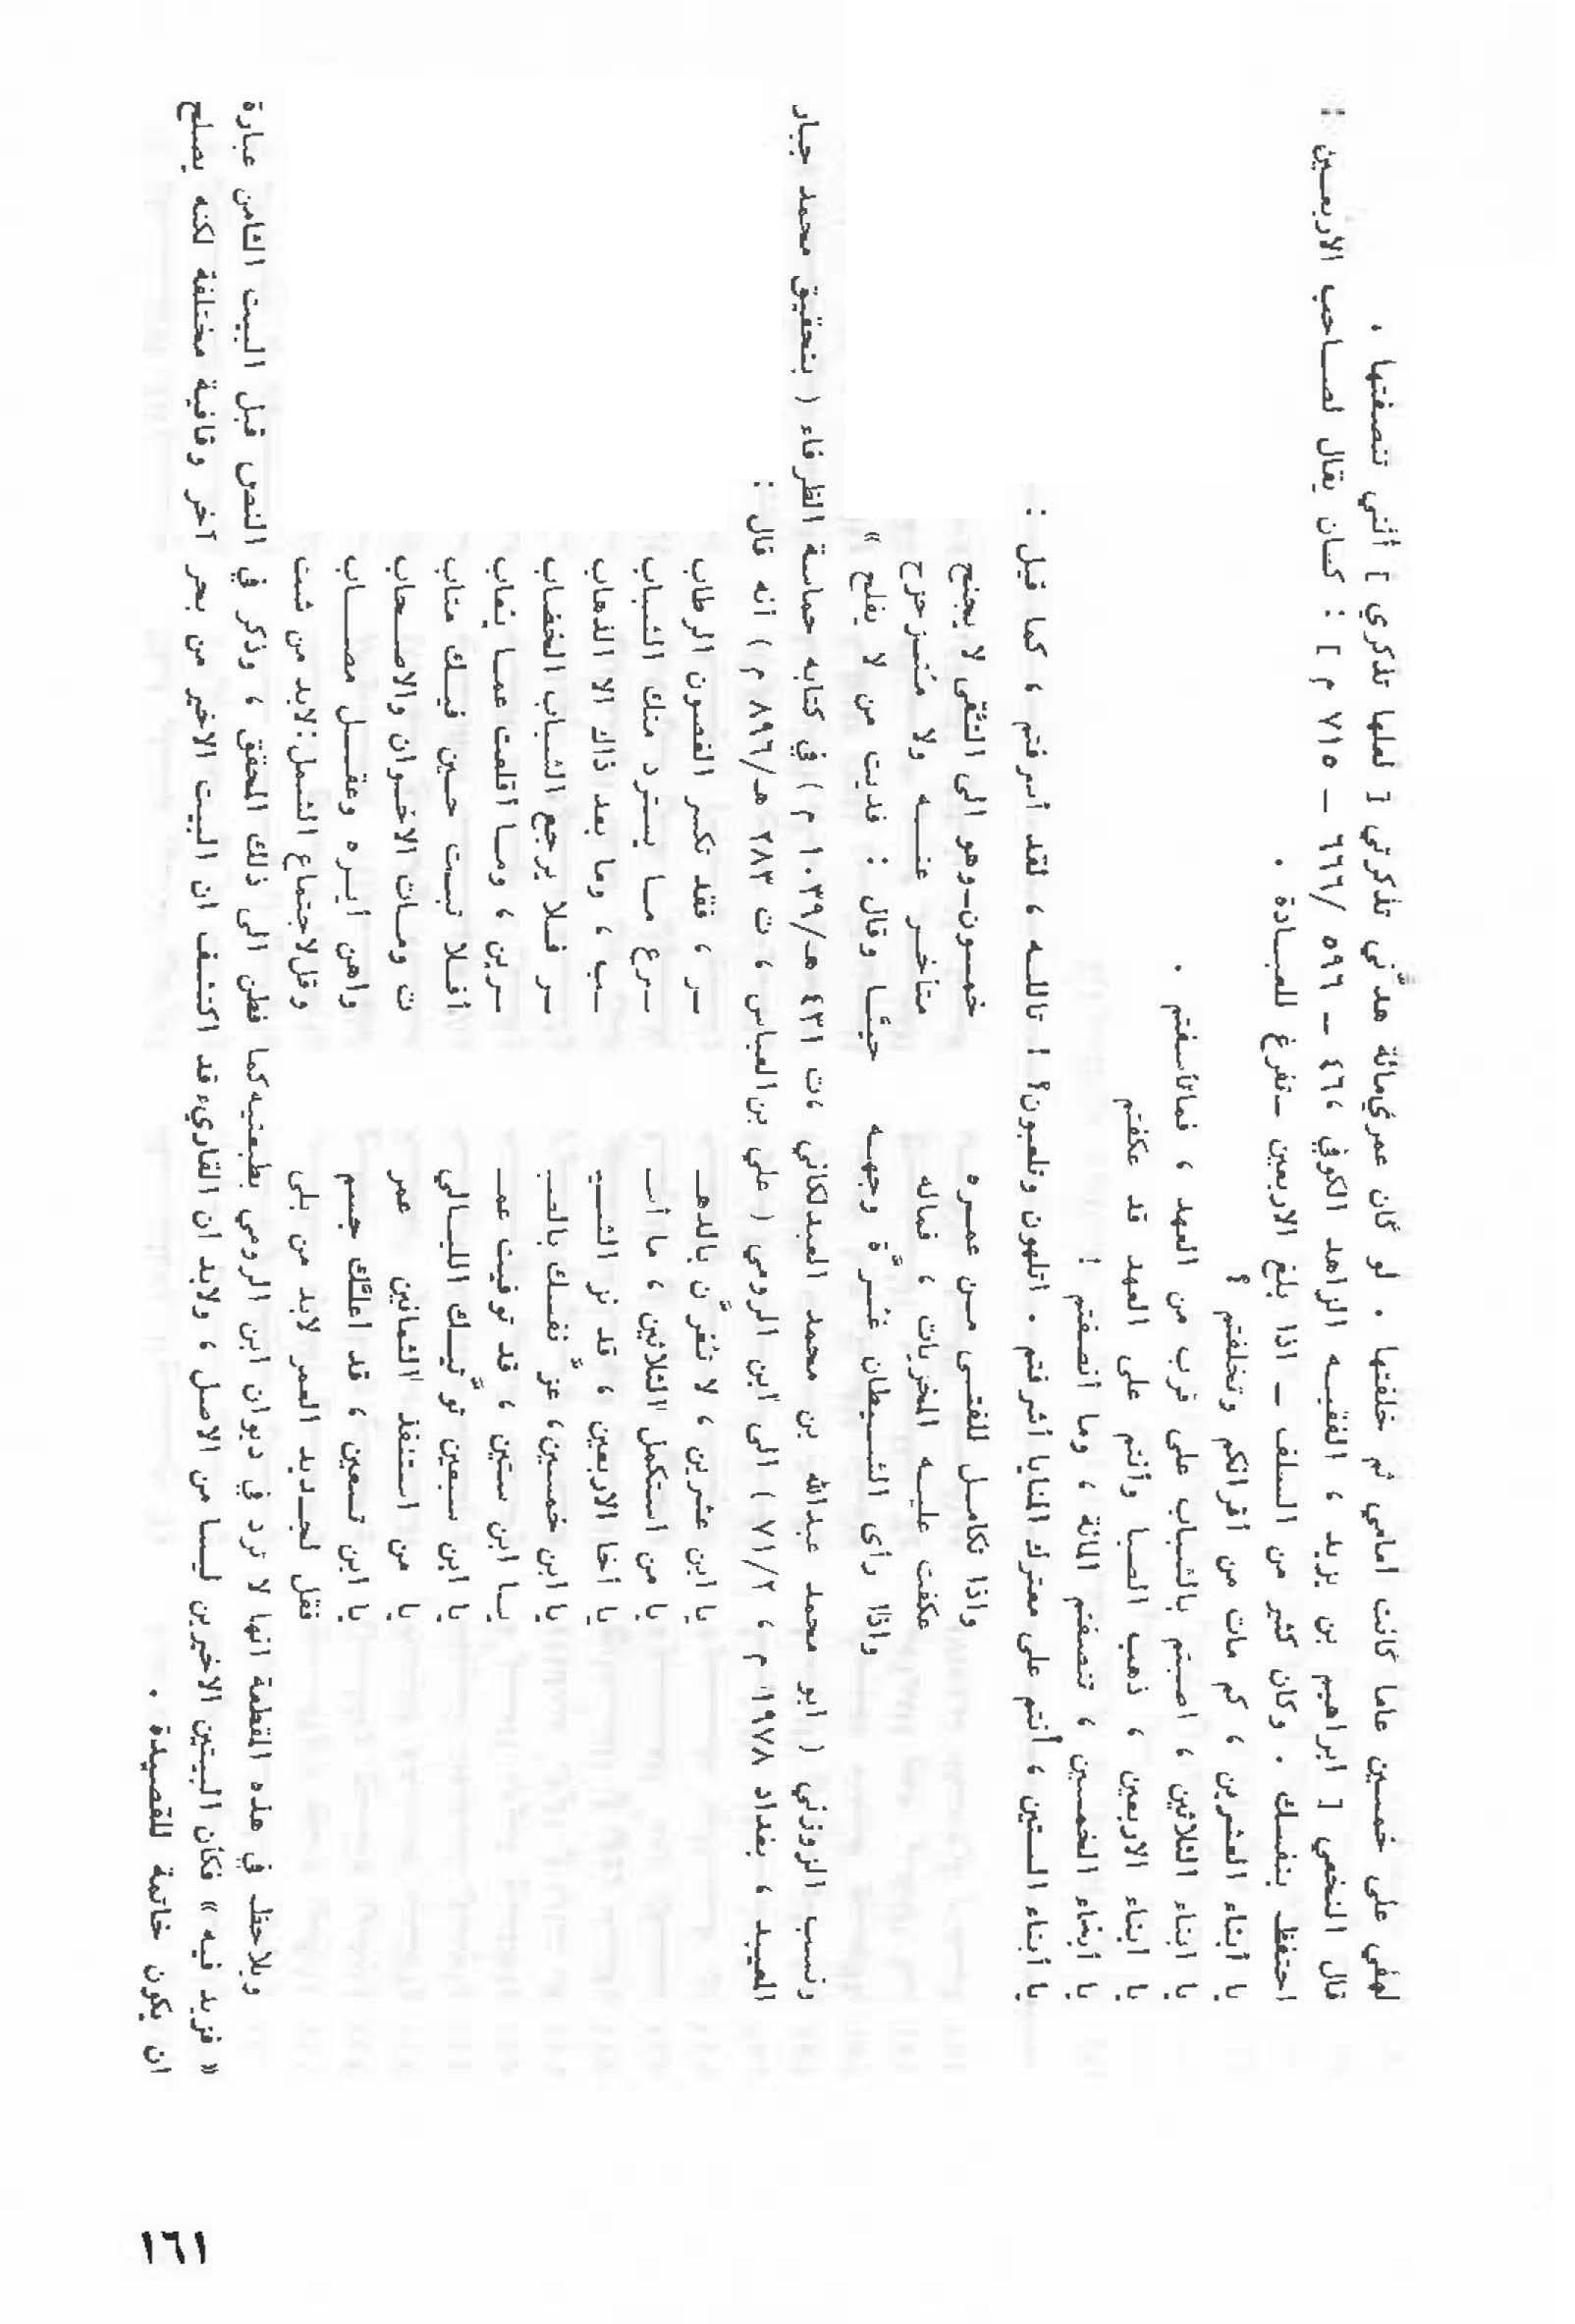 لهفي على خمسين عاما كانت امامي ثم خلفتها . لو كان عمري مائة هدَّني تذكرتي [ لعلها تذكري ] أنني تنصفتها .
قال النخعي [ ابراهيم بن يزيد ، الفقيــه الزاهد الكوفي ، ٤٦ ــ ٥٩٦ / ٦٦٦ ــ ٧١٥ م ] : كـان يقال لصـاحب الأربعـين :
احتفظ بنفسك . وكان كثير من السلف ــ اذا بلغ الاربعين ــ تفرغ للعبـادة .
يا أبناء العشرين ، كم مات من أقرانكم وتخلفتم ؟
يا ابناء الثلاثين ، اصبتم بالشباب على قرب من العهد ، فماتأسفتم .
يا ابناء الاربعين ، ذهب الصبا وأنتم على العهد قد عكفتم
يا أبناء الخمسـين ، تنصفتم المائة ، وما أنصفتم !
يا أبناء السـتين ، أنتم على معترك المنايا أشرفتم . اتلهون وتلعبون؟ ! تاللـه ، لقد أسرفتم ، كما قيل :
واذا تكامـل للفتـى مـن عمـره خمسـون ــ وهو الى التُّقى لا يجنح
عكفت عليـه المخزيات ، فماله متأخـر عنــه ولا متـزحزح
واذا رأى الشـيطان غـرَّة وجهـه حيـَّا وقال : فديت من لا يفلح »
ونسـب الزوزني ( ابو محمد عبدالله بن محمد العبدلكاني ،ت ٤٣١ هـ/١٠٣٩ م ) في كتابه حماسة الظرفاء ( بتحقيق محمد جبار
المعيبد ، بغداد ١٩٧٨ م ، ٧١/٢ ) الى ابن الرومي ( علي بن العباس ، ت ٢٨٣ هـ/٨٩٦ م ) أنه قال :
يا ابن عشرين ، لا تغرَّن بالدهـ ـر ، فقد تكسر الغصون الرطاب
يا من استكمل الثلاثين ، ما أسـ ـرع مـا يسـترد منك الشـباب
يا أخا الاربعين ، قد نز الشـيـ ـب ، وما بعد ذاك الا الذهاب
يا ابن خمسـين، عزِّ نفسـك بالصـبـ ـر فـلا يرجع الشـباب الخضاب
يـا ابن ستين ، قد توفيت عمـ ـرين ، ومـا أقلعت عمـا يعاب
يا ابن سـبعين توَّتيـك الليـالي أفـلا تبـت حـين فيـك متاب
يا من استنفذ الثمانين عمر ت ومـات الاخـوان والاصـحاب
يا ابن تسعين ، قد اعلـَّك جسم واهن أيـره وعقـــل مصــاب
فقل لجـديد العمر لابد من بلى وقل لاجتماع الشـمل:لابد من شت
ويلاحظ في هذه المقطعة انها لا ترد في ديوان ابن الرومي بطبعتيه كما فطن الى ذلك المحقق ، وذكر في النص قبل البيت الثامن عبارة
« فزيد فيه » فكأن البيتين الاخيرين ليسا من الاصل ، ولابد ان القاريء قد اكتشـف ان البيت الاخير من بحر آخر وقافية مختلفة لكنه يصلح
ان يكون خاتمة للقصيدة .
١٦١